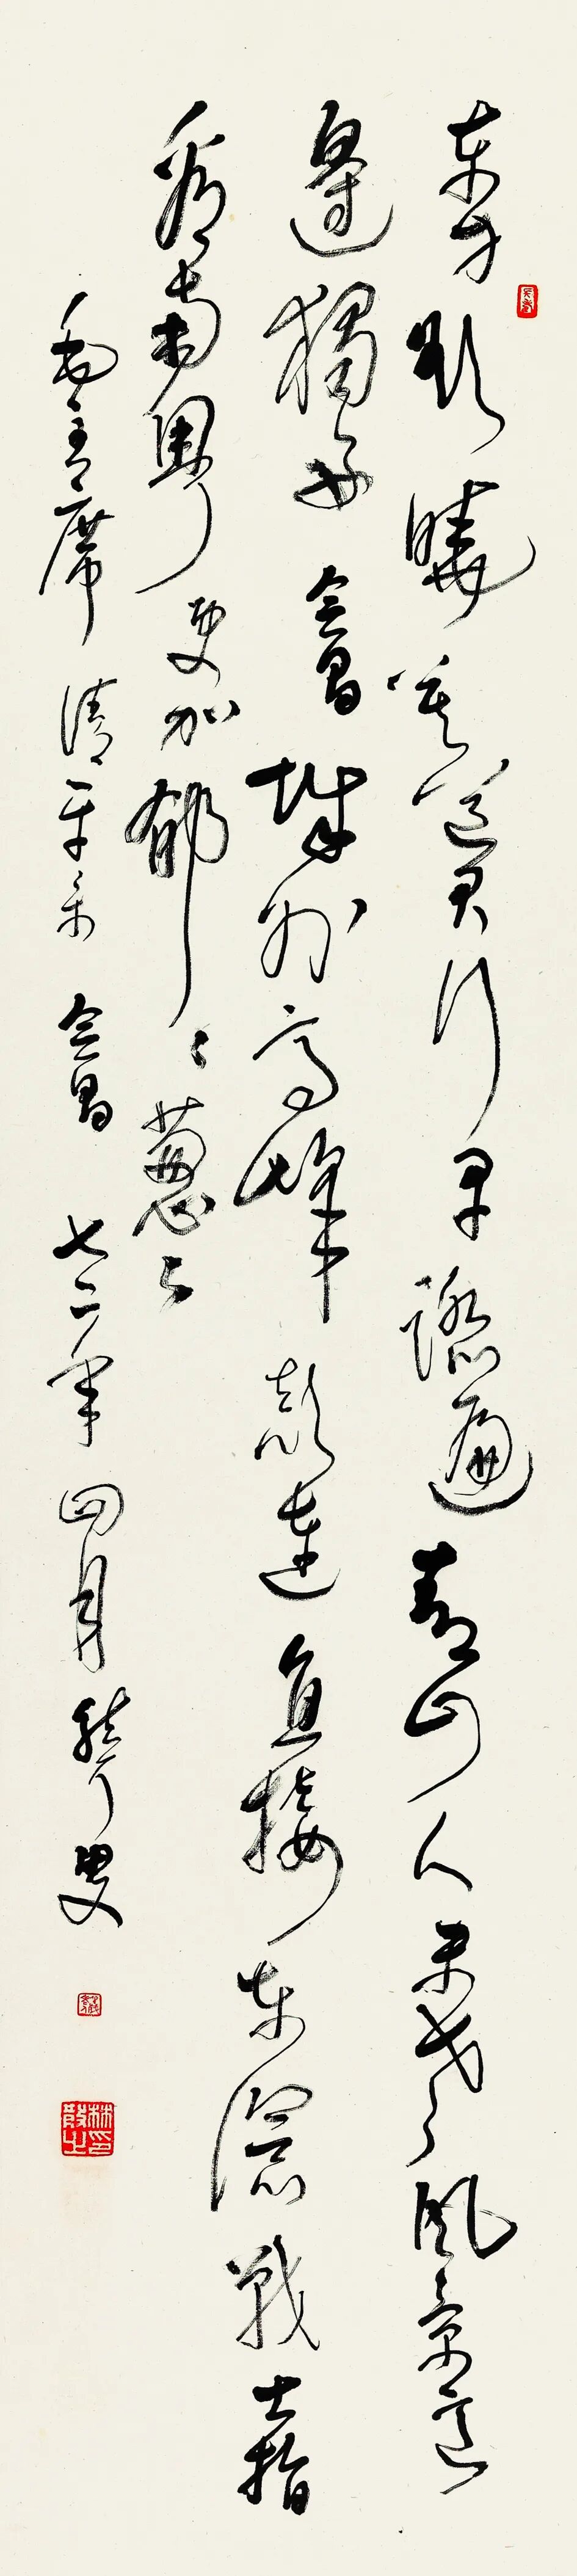 東方欲曉莫道君行早踏遍青山人未老風景這
邊獨好會昌城外高峰顛連直接東溟戰士指
看南粵更加郁々葱々
毛主席清平樂會昌七二年四月聾叟
林散之印